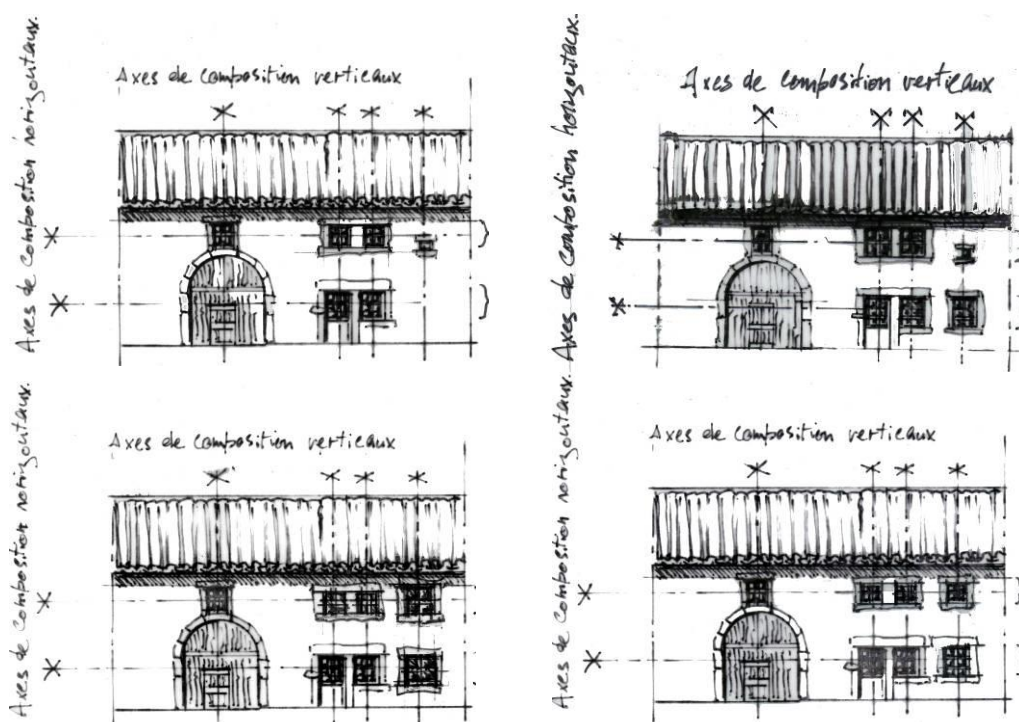 Axes de composition horizontaux.
Axes de composition verticaux
Axes de composition horizontaux.
Axes de composition verticaux
Axes de composition horizontaux.
Axes de composition verticaux
Axes de composition horizontaux.
Axes de composition verticaux